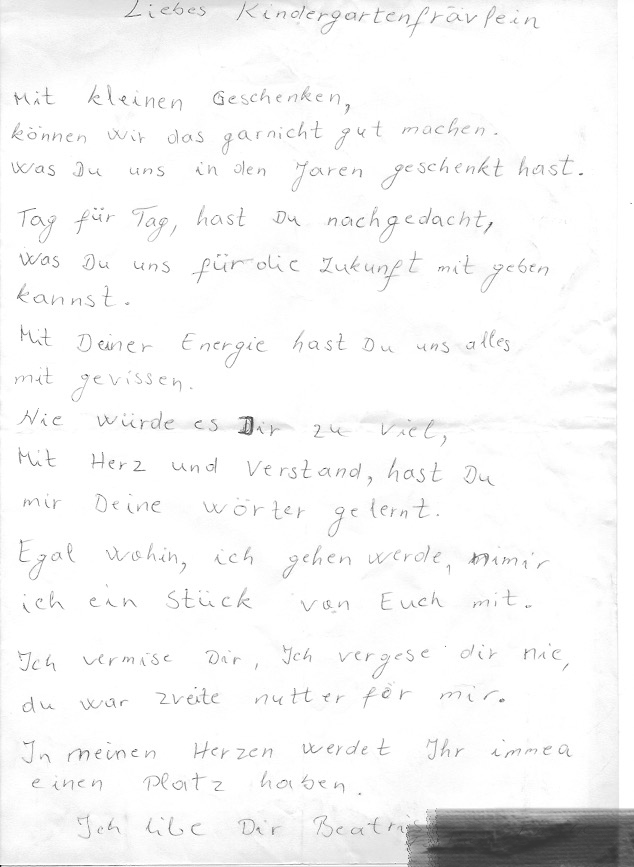 Liebes Kindergartenfräulein
Mit kleinen Geschenken,
können wir das garnicht gut machen.
Was Du uns in den Jaren geschenkt hast.
Tag für Tag, hast Du nachgedacht,
was Du uns für die Zukunft mit geben
kannst.
Mit Deiner Energie hast Du uns alles
mit gevissen.
Nie würde es Dir zu viel,
Mit Herz und Verstand, hast Du
mir Deine wörter gelernt.
Egal wohin, ich gehen werde, nimir
ich ein Stück von Euch mit.
Ich vermise Dir, Ich vergese dir nie,
du war zveite nutter för mir.
In meinen Herzen werdet Ihr immea
einen Platz haben.
Ich libe Dir